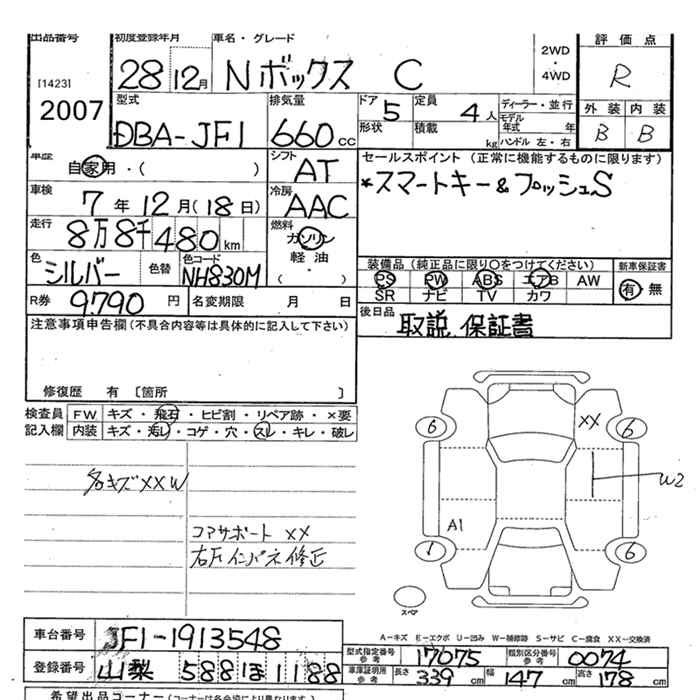 出品番号 初度登録年月 車名・グレード 評価点
[1423] 28 12月 Nボックス C 2WD・4WD R
2007 型式 DBA-JF1 排気量 660cc ドア 5 定員 4人 ディーラー・並行 外装 内装
形状 積載 kg モデル年式 年 ハンドル 左・右 B B
車歴 自家用・( ) シフト AT セールスポイント(正常に機能するものに限ります)
車検 7年12月(18日) 冷房 AAC *スマートキー&プッシュS
走行 8万8千480km 燃料 ガソリン 軽油 ( )
色 シルバー 色替 色コード NH830M 装備品(純正品に限り○をつけてください) 新車保証書
PS PW ABS エアB AW 有・無
R券 9790円 名変期限 月 日 SR ナビ TV カワ
後日品 取説 保証書
注意事項申告欄(不具合内容等は具体的に記入して下さい)
修復歴 有 [箇所 ]
検査員 FW キズ・飛石・ヒビ割・リペア跡・×要
記入欄 内装 キズ・汚レ・コゲ・穴・スレ・キレ・破レ
各キズXXW
コアサポート XX
右Fインパネ修正
6 XX 6
W2
A1
1 6
スペア
A-キズ E-エクボ U-凹み W-補修跡 S-サビ C-腐食 XX-交換済
車台番号 JF1-1913548
型式指定番号 参考 17075 類別区分番号 参考 0074
登録番号 山梨 588 ほ 1188
車庫証明用 参考 長さ 339cm 幅 147cm 高さ 178cm
希望出品コーナー(コーナーは各会場により異なります)